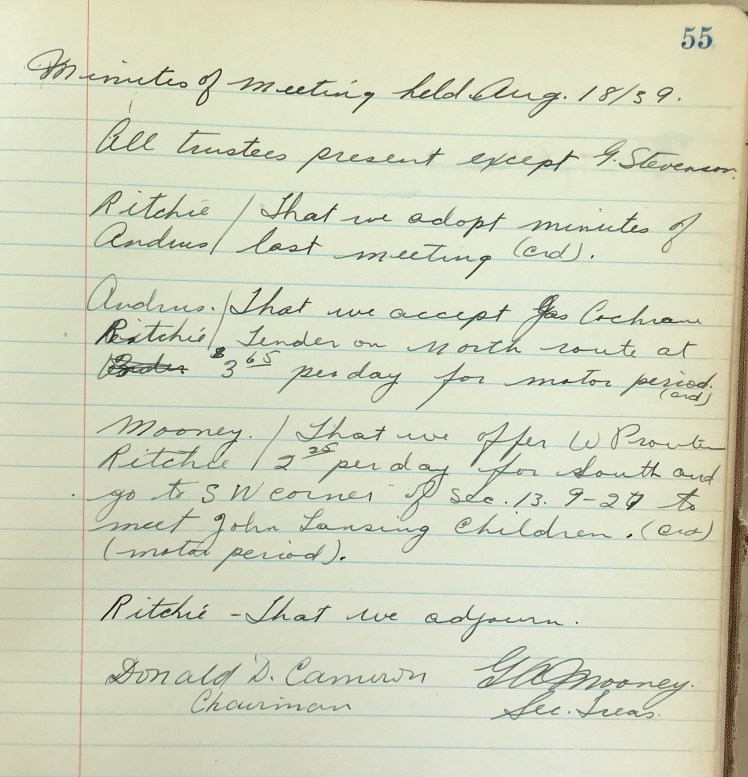 55
Minutes of meeting held Aug. 18/39.
All trustees present except G. Stevenson.
Ritchie / That we adopt minutes of
Andrus / last meeting (crd).
Andrus. / That we accept Jas Cochrane
Ritchie / Tender on North route at
$3 65 per day for motor period.
(crd)
Mooney. / That we offer W Prouten
Ritchie / 2 25 per day for South and
go to S W corner of Sec. 13. 9-27 to
meet John Lansing Children. (crd)
(motor period).
Ritchie - That we adjourn.
Donald D. Cameron G A Mooney.
Chairman Sec. Treas.